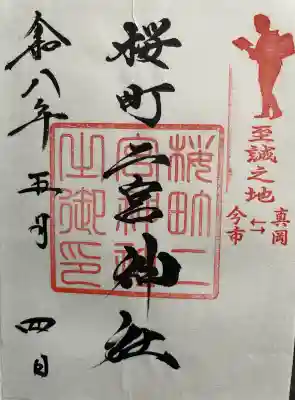 至誠之地
真岡
⇆
今市
桜町二宮神社
桜町二
宮神社
之御印
令八年 五月 四日